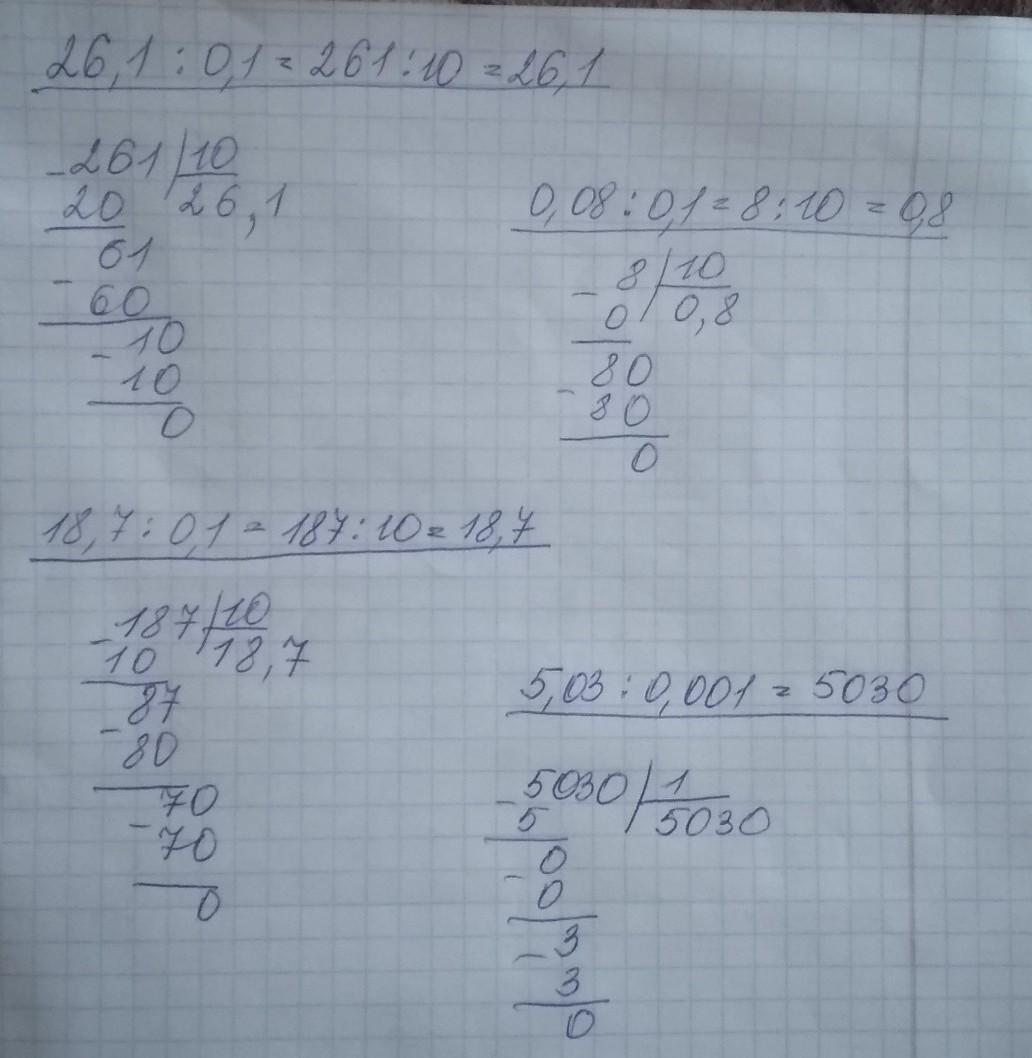 26,1 : 0,1 = 261 : 10 = 26,1
- 261 | 10
20 26,1
61
- 60
10
- 10
0
0,08 : 0,1 = 8 : 10 = 0,8
- 8 | 10
0 0,8
80
- 80
0
18,7 : 0,1 = 187 : 10 = 18,7
- 187 | 10
10 18,7
87
- 80
70
- 70
0
5,03 : 0,001 = 5030
- 5030 | 1
5 5030
0
- 0
- 3
3
0